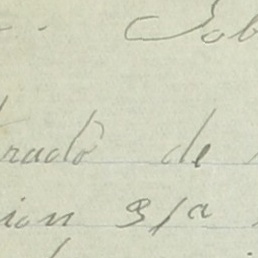 Sob
rado de
ion s/a